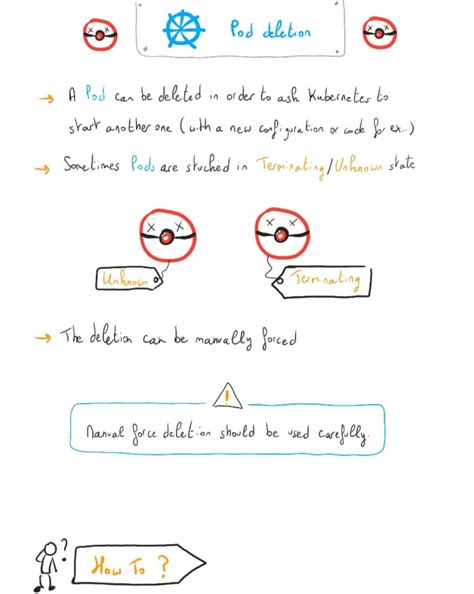 Pod deletion
→ A Pod can be deleted in order to ask Kubernetes to
start another one (with a new configuration or code for ex...)
→ Sometimes Pods are stucked in Terminating/Unknown state
Unknown
Terminating
→ The deletion can be manually forced
!
Manual force deletion should be used carefully.
?
How To ?